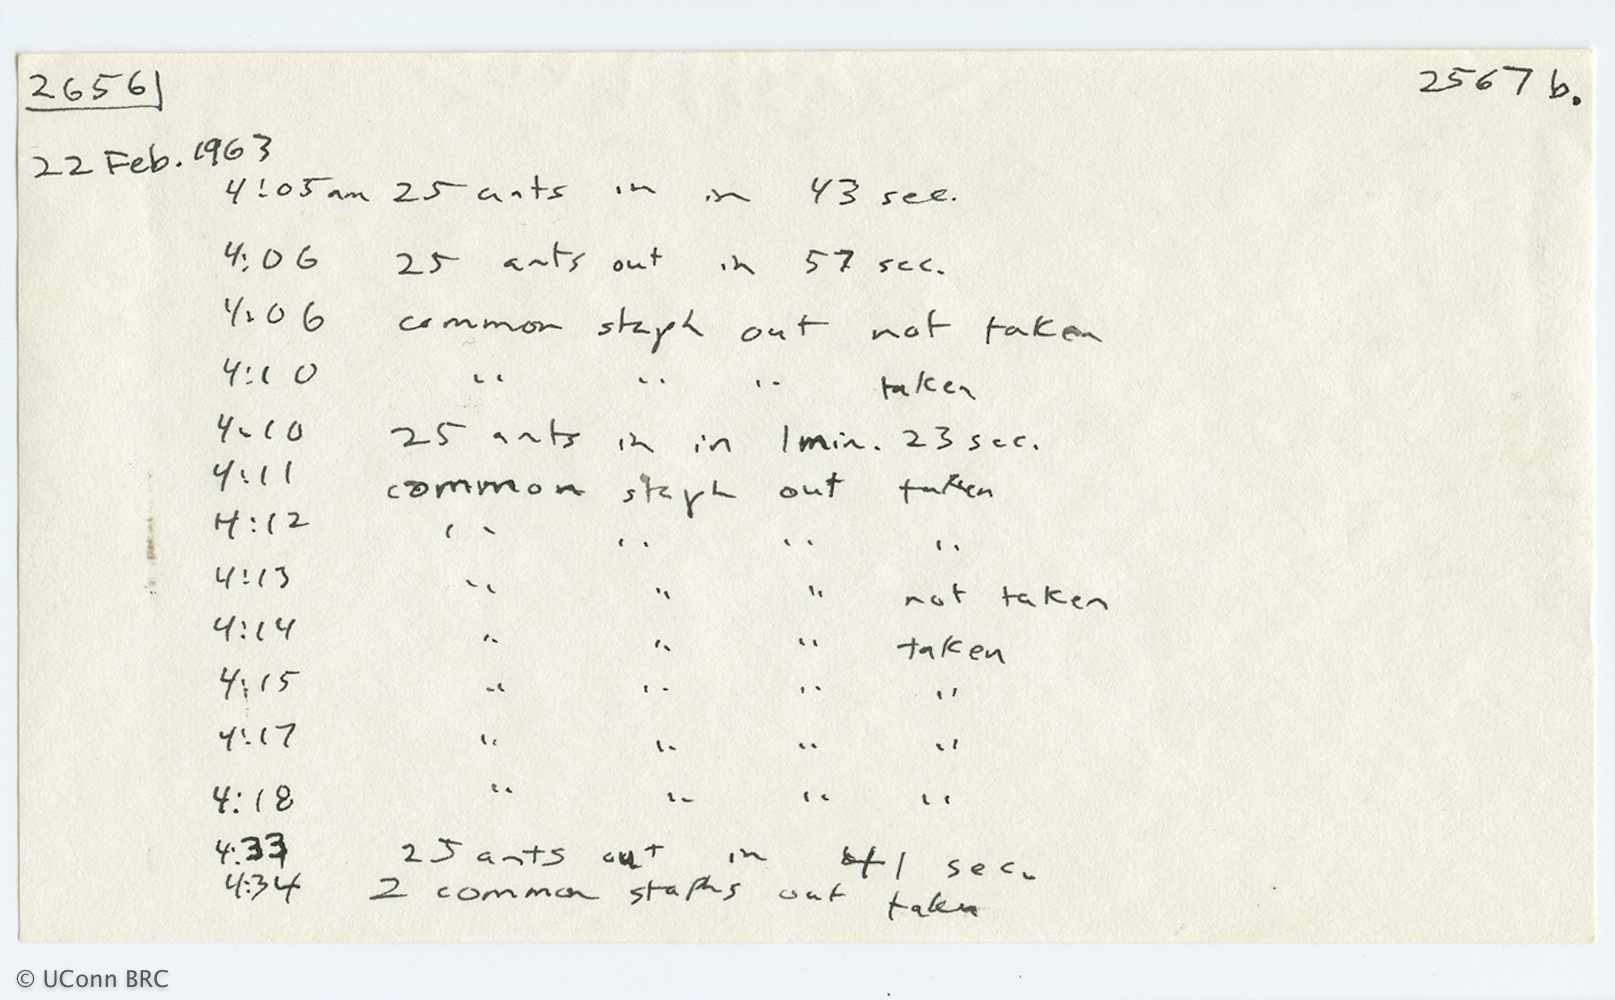 2656
2567 b.
22 Feb. 1963
4:05 am 25 ants in in 43 sec.
4:06 25 ants out in 57 sec.
4:06 common staph out not taken
4:10 " " " taken
4:10 25 ants in in 1 min. 23 sec.
4:11 common staph out taken
4:12 " " " "
4:13 " " " not taken
4:14 " " " taken
4:15 " " " "
4:17 " " " "
4:18 " " " "
4:33 25 ants out in 41 sec.
4:34 2 common staphs out taken
© UConn BRC